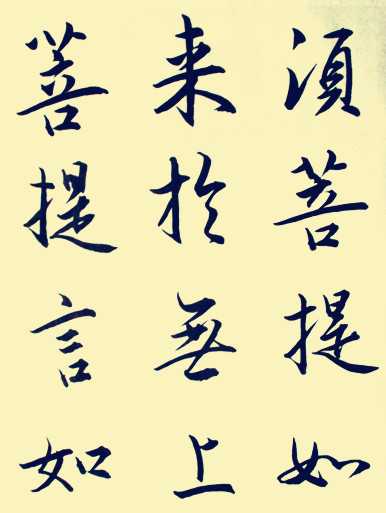 須菩提如
来於無上
菩提言如